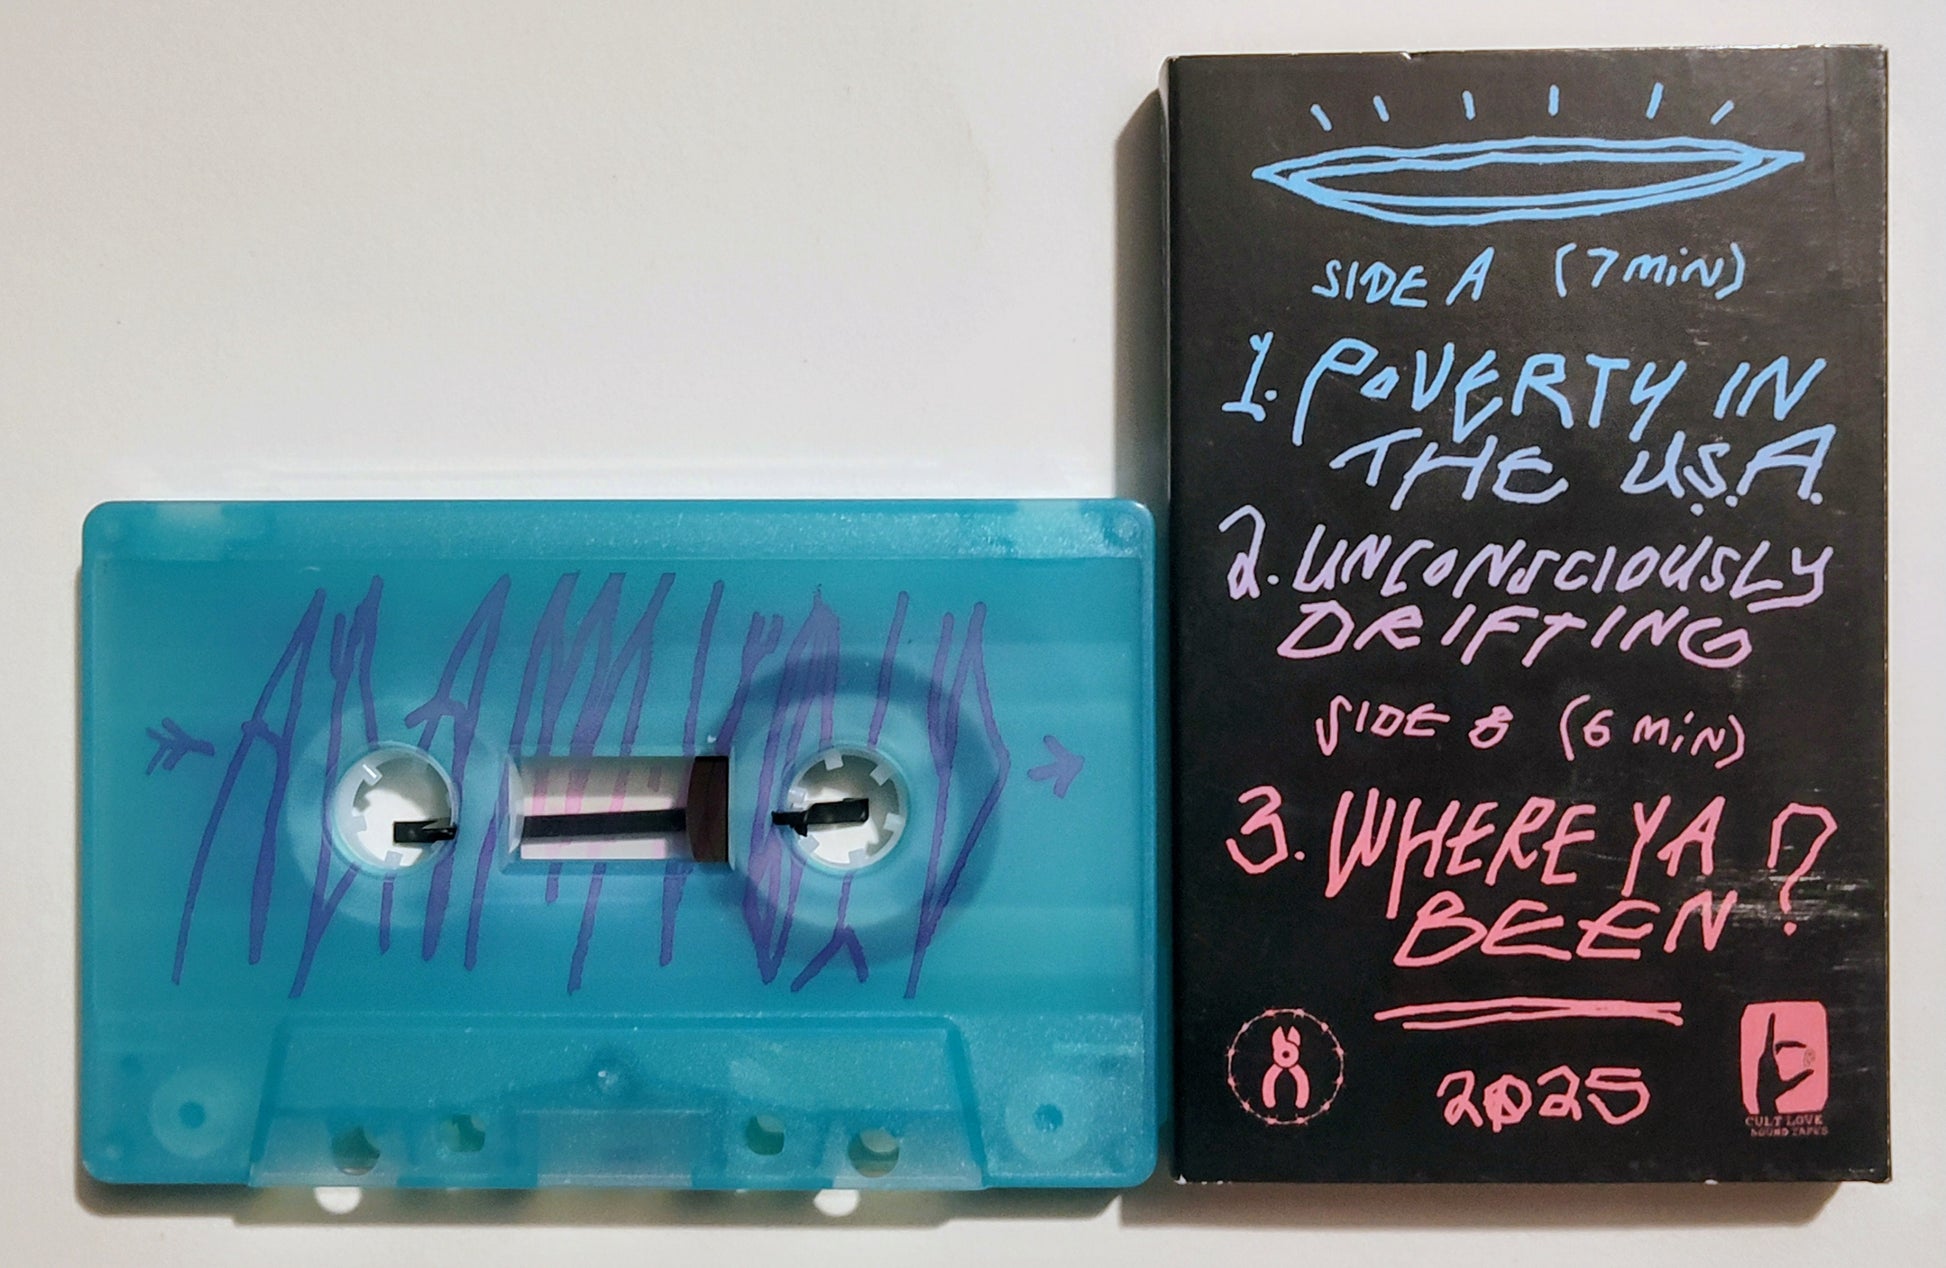 SIDE A (7 MIN)
1. POVERTY IN
THE U.S.A.
2. UNCONSCIOUSLY
DRIFTING
SIDE B (6 MIN)
3. WHERE YA
BEEN ?
2025
CULT LOVE
SOUND TAPES